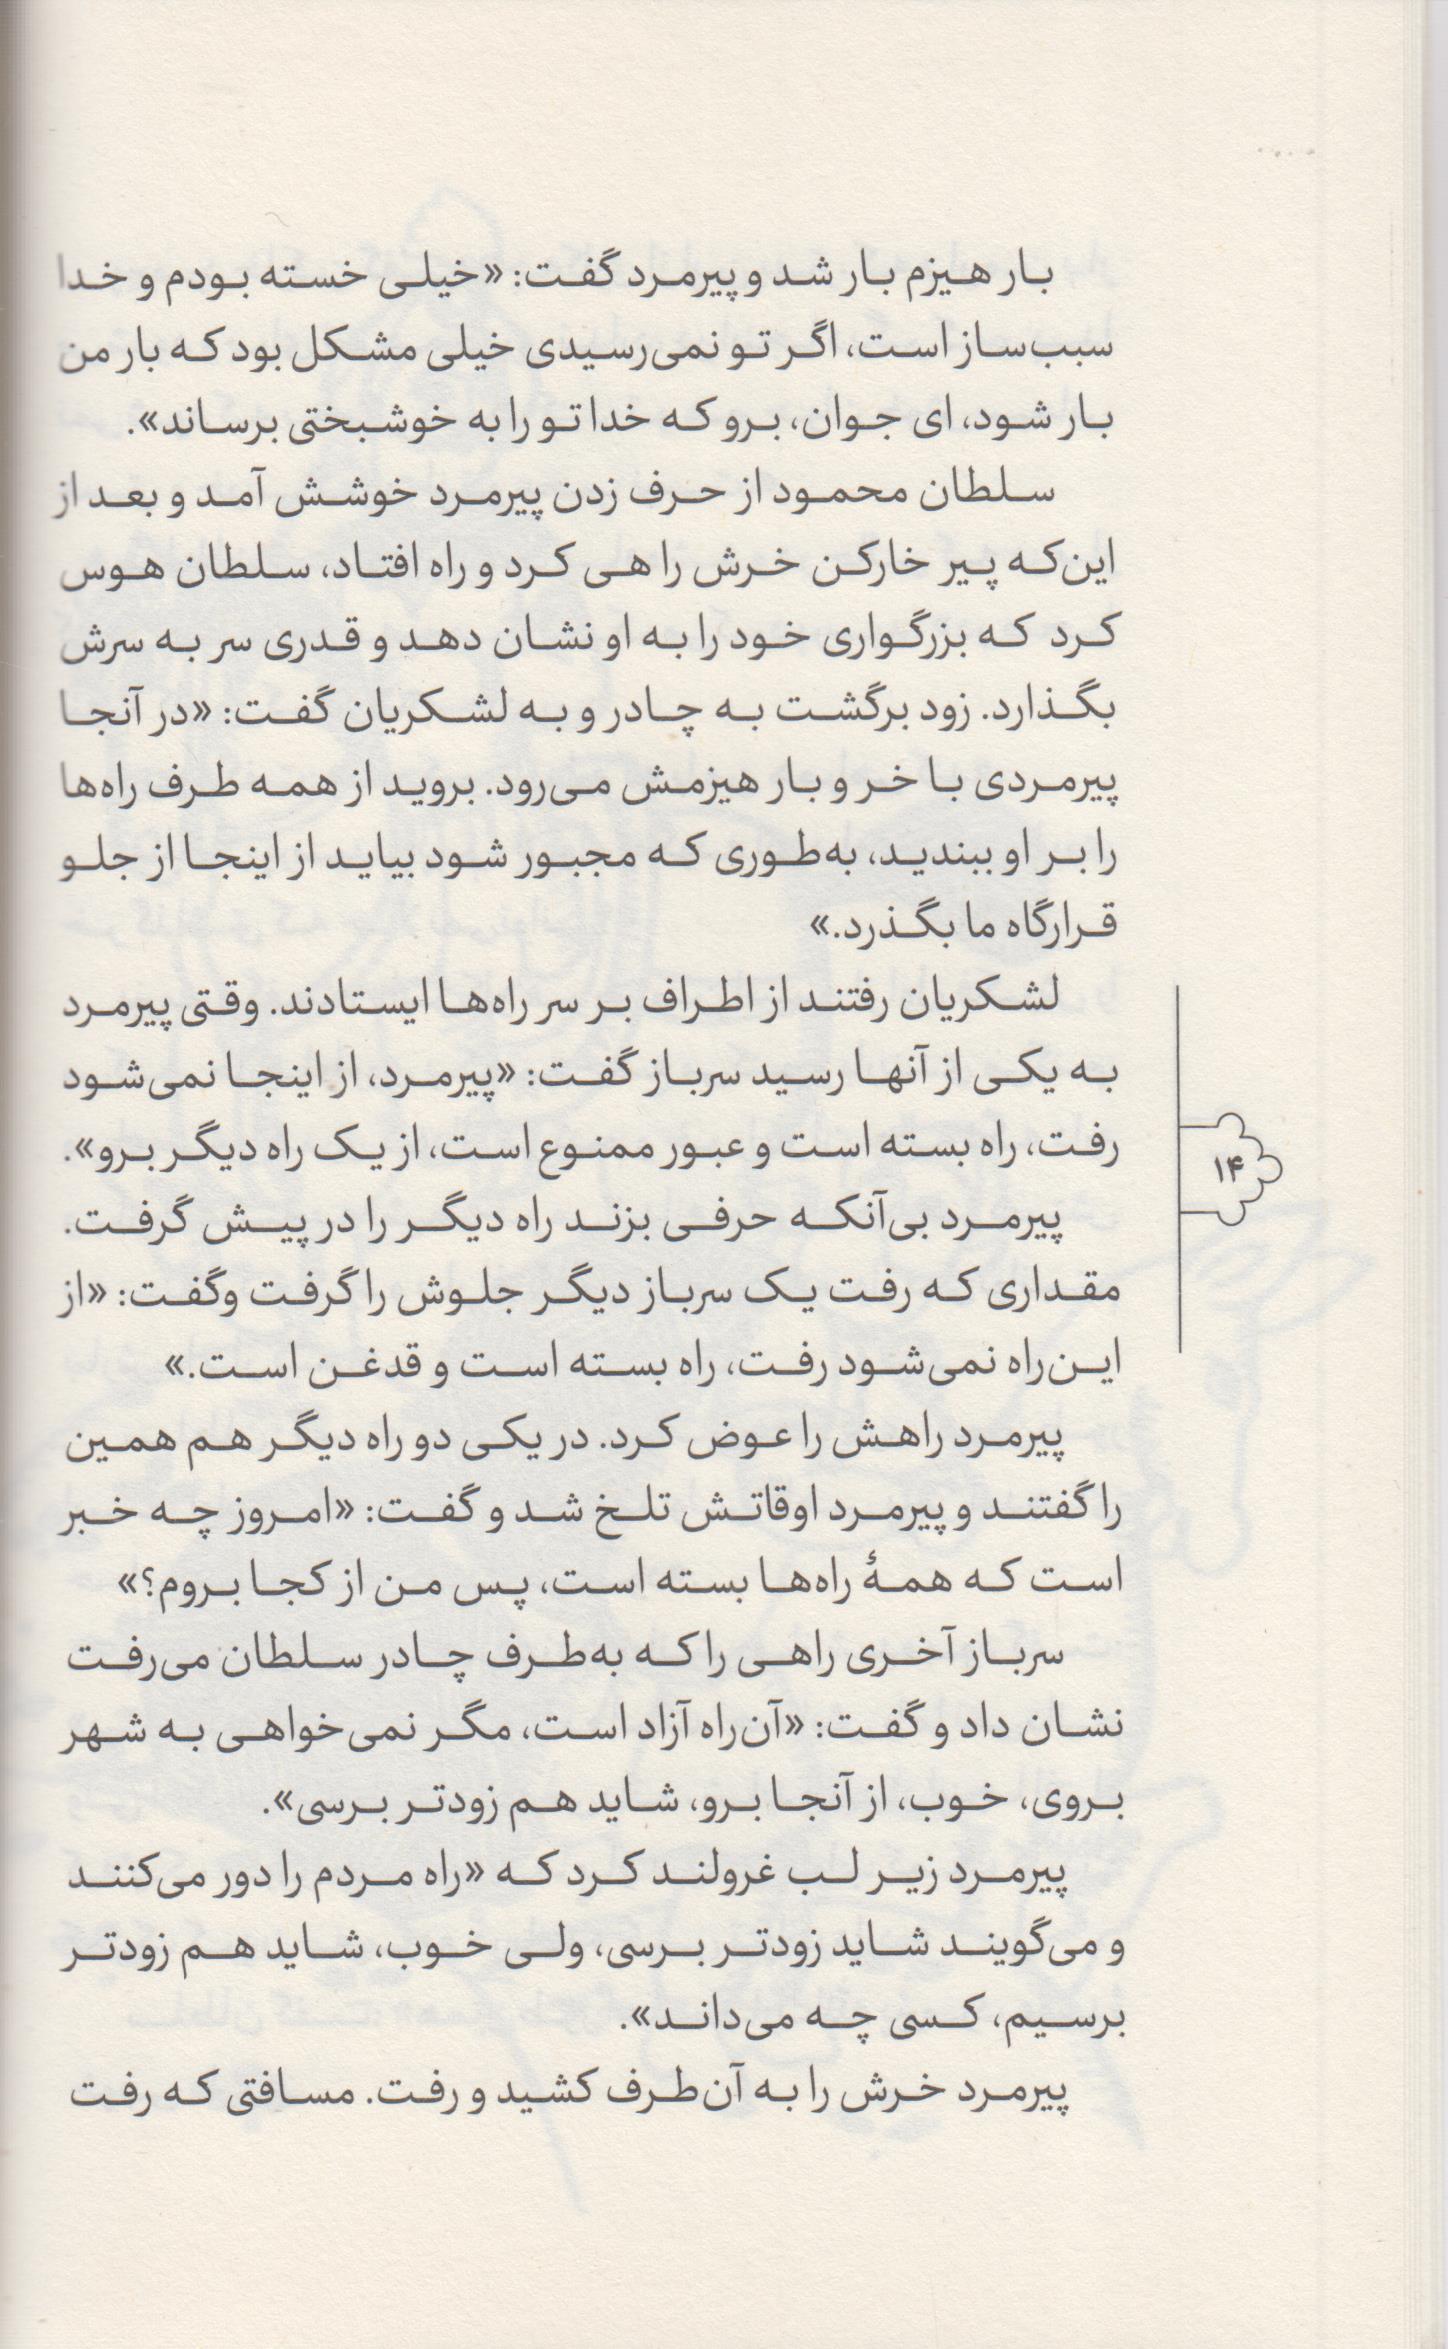 بار هیزم بار شد و پیرمرد گفت: «خیلی خسته بودم و خدا
سبب‌ساز است، اگر تو نمی‌رسیدی خیلی مشکل بود که بار من
بار شود، ای جوان، برو که خدا تو را به خوشبختی برساند».
سلطان محمود از حرف زدن پیرمرد خوشش آمد و بعد از
این‌که پیر خارکن خرش را هی کرد و راه افتاد، سلطان هوس
کرد که بزرگواری خود را به او نشان دهد و قدری سر به سرش
بگذارد. زود برگشت به چادر و به لشکریان گفت: «در آنجا
پیرمردی با خر و بار هیزمش می‌رود. بروید از همه طرف راه‌ها
را بر او ببندید، به‌طوری که مجبور شود بیاید از اینجا از جلو
قرارگاه ما بگذرد.»
لشکریان رفتند از اطراف بر سر راه‌ها ایستادند. وقتی پیرمرد
به یکی از آنها رسید سرباز گفت: «پیرمرد، از اینجا نمی‌شود
رفت، راه بسته است و عبور ممنوع است، از یک راه دیگر برو».
پیرمرد بی‌آنکه حرفی بزند راه دیگر را در پیش گرفت.
مقداری که رفت یک سرباز دیگر جلوش را گرفت وگفت: «از
این‌راه نمی‌شود رفت، راه بسته است و قدغن است.»
پیرمرد راهش را عوض کرد. در یکی دو راه دیگر هم همین
را گفتند و پیرمرد اوقاتش تلخ شد و گفت: «امروز چه خبر
است که همهٔ راه‌ها بسته است، پس من از کجا بروم؟»
سرباز آخری راهی را که به‌طرف چادر سلطان می‌رفت
نشان داد و گفت: «آن‌راه آزاد است، مگر نمی‌خواهی به شهر
بروی، خوب، از آنجا برو، شاید هم زودتر برسی».
پیرمرد زیر لب غرولند کرد که «راه مردم را دور می‌کنند
و می‌گویند شاید زودتر برسی، ولی خوب، شاید هم زودتر
برسیم، کسی چه می‌داند».
پیرمرد خرش را به آن‌طرف کشید و رفت. مسافتی که رفت
۱۴